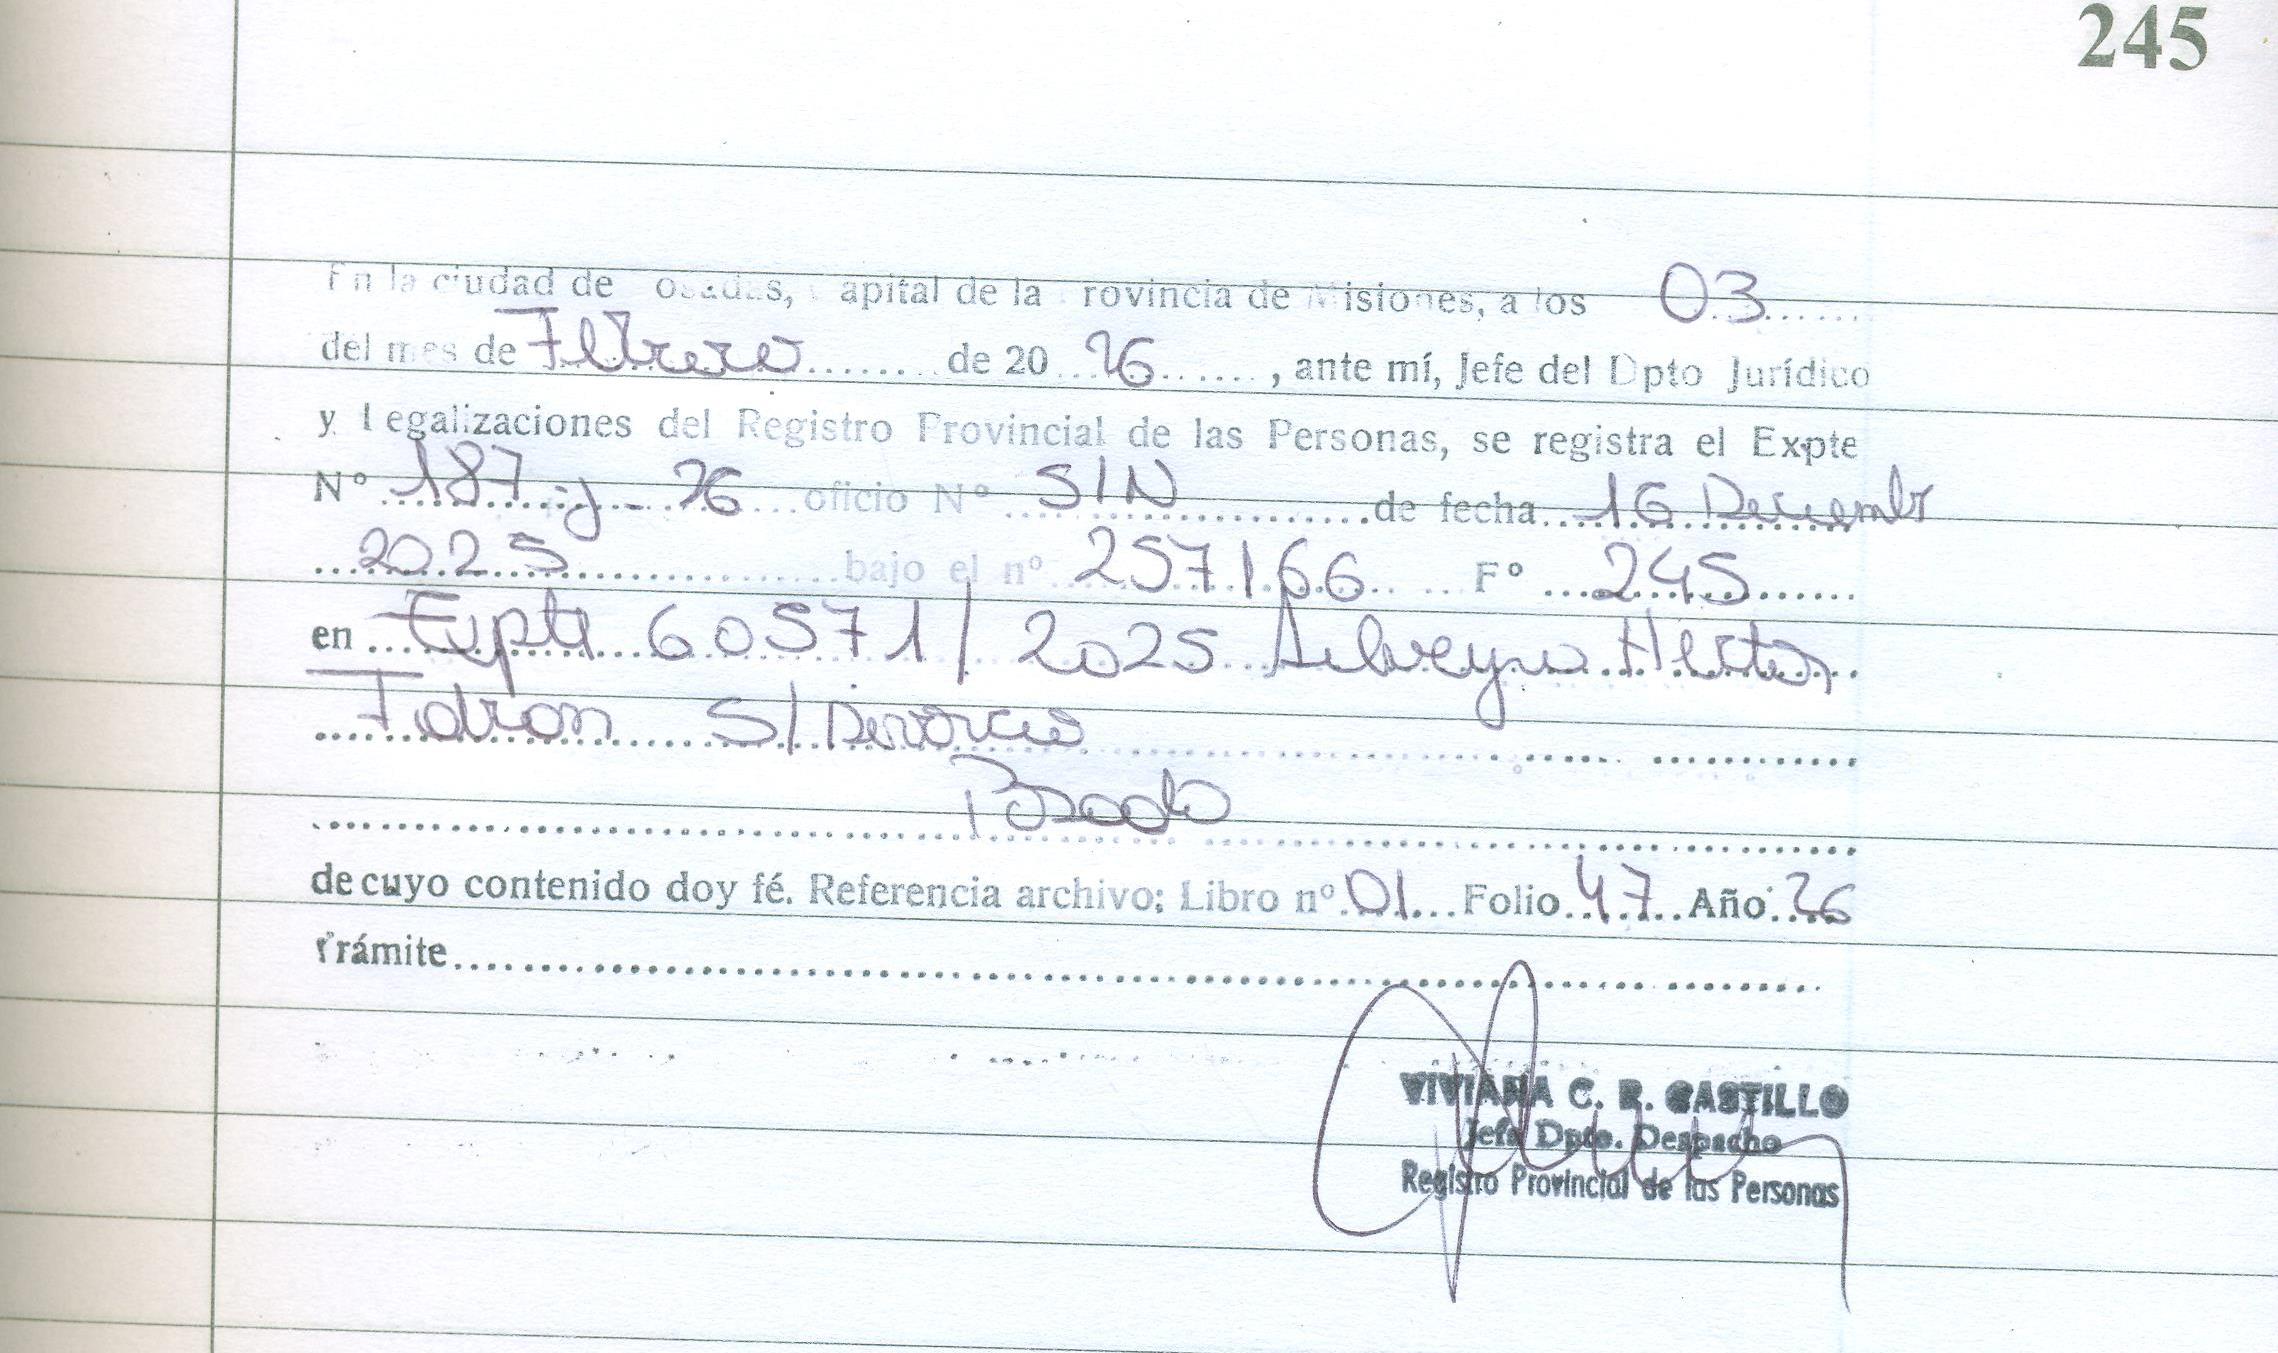 245
En la ciudad de Posadas, Capital de la Provincia de Misiones, a los 03
del mes de Febrero de 20 26, ante mí, Jefe del Dpto Jurídico
y Legalizaciones del Registro Provincial de las Personas, se registra el Expte
Nº 187-J-26 oficio Nº S/N de fecha 16 Diciembr
2025 bajo el nº 257166 Fº 245
en Expte 60571/2025 Silveyra Hector
S/Divorcio
de cuyo contenido doy fé. Referencia archivo; Libro nº 01 Folio 47 Año 26
Trámite
VIVIANA C. R. CASTILLO
Jefa Dpto. Despacho
Registro Provincial de las Personas